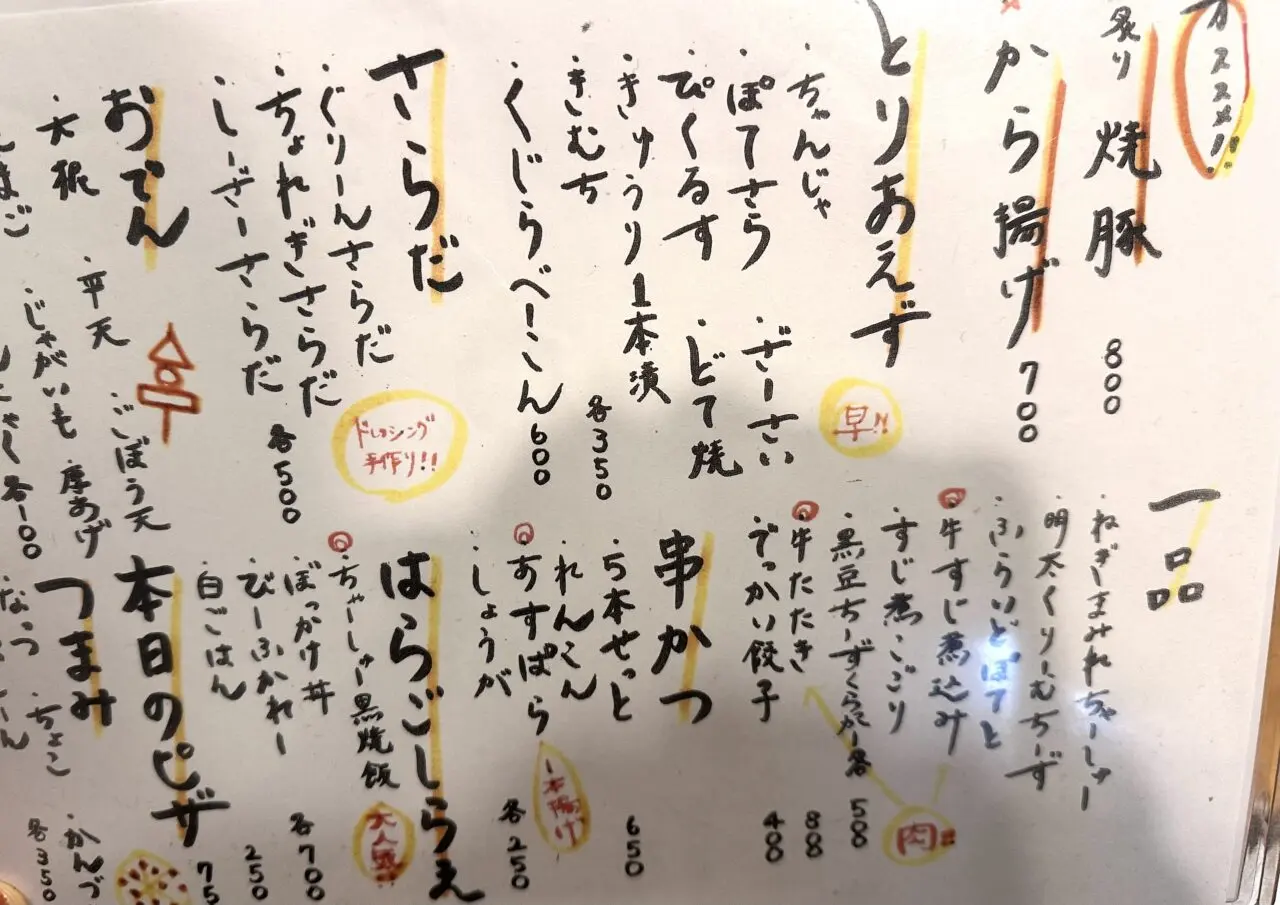 オススメ!!
炙り 焼豚 800
から揚げ 700
とりあえず
早!!
・ちゃんじゃ
・ぽてさら ・ざーさい
・ぴくるす ・どて焼
・きゅうり1本漬
・きむち 各350
・くじらべーこん 600
さらだ
・ぐりーんさらだ
・ちょれぎさらだ
・しーざーさらだ 各500
ドレッシング
手作り!!
おでん
・大根 ・平天 ・ごぼう天
・じゃがいも 厚あげ
各100
一品
・ねぎまみれちゃーしゅー
・明太くりーむちーず
・ふらいどぽてと
・牛すじ煮込み
・すじ煮こごり
・黒豆ちーずくらっかー各500
・牛たたき 800
・でっかい餃子 400
肉!!
串かつ
・5本せっと 650
・れんこん
・あすぱら
・しょうが 各250
1本揚げ
はらごしらえ
・ちゃーしゅー黒焼飯
・ぼっかけ丼 各700
・びーふかれー
・白ごはん 250
大人気
本日のピザ 75
つまみ
ちょこ
かんづ
各350